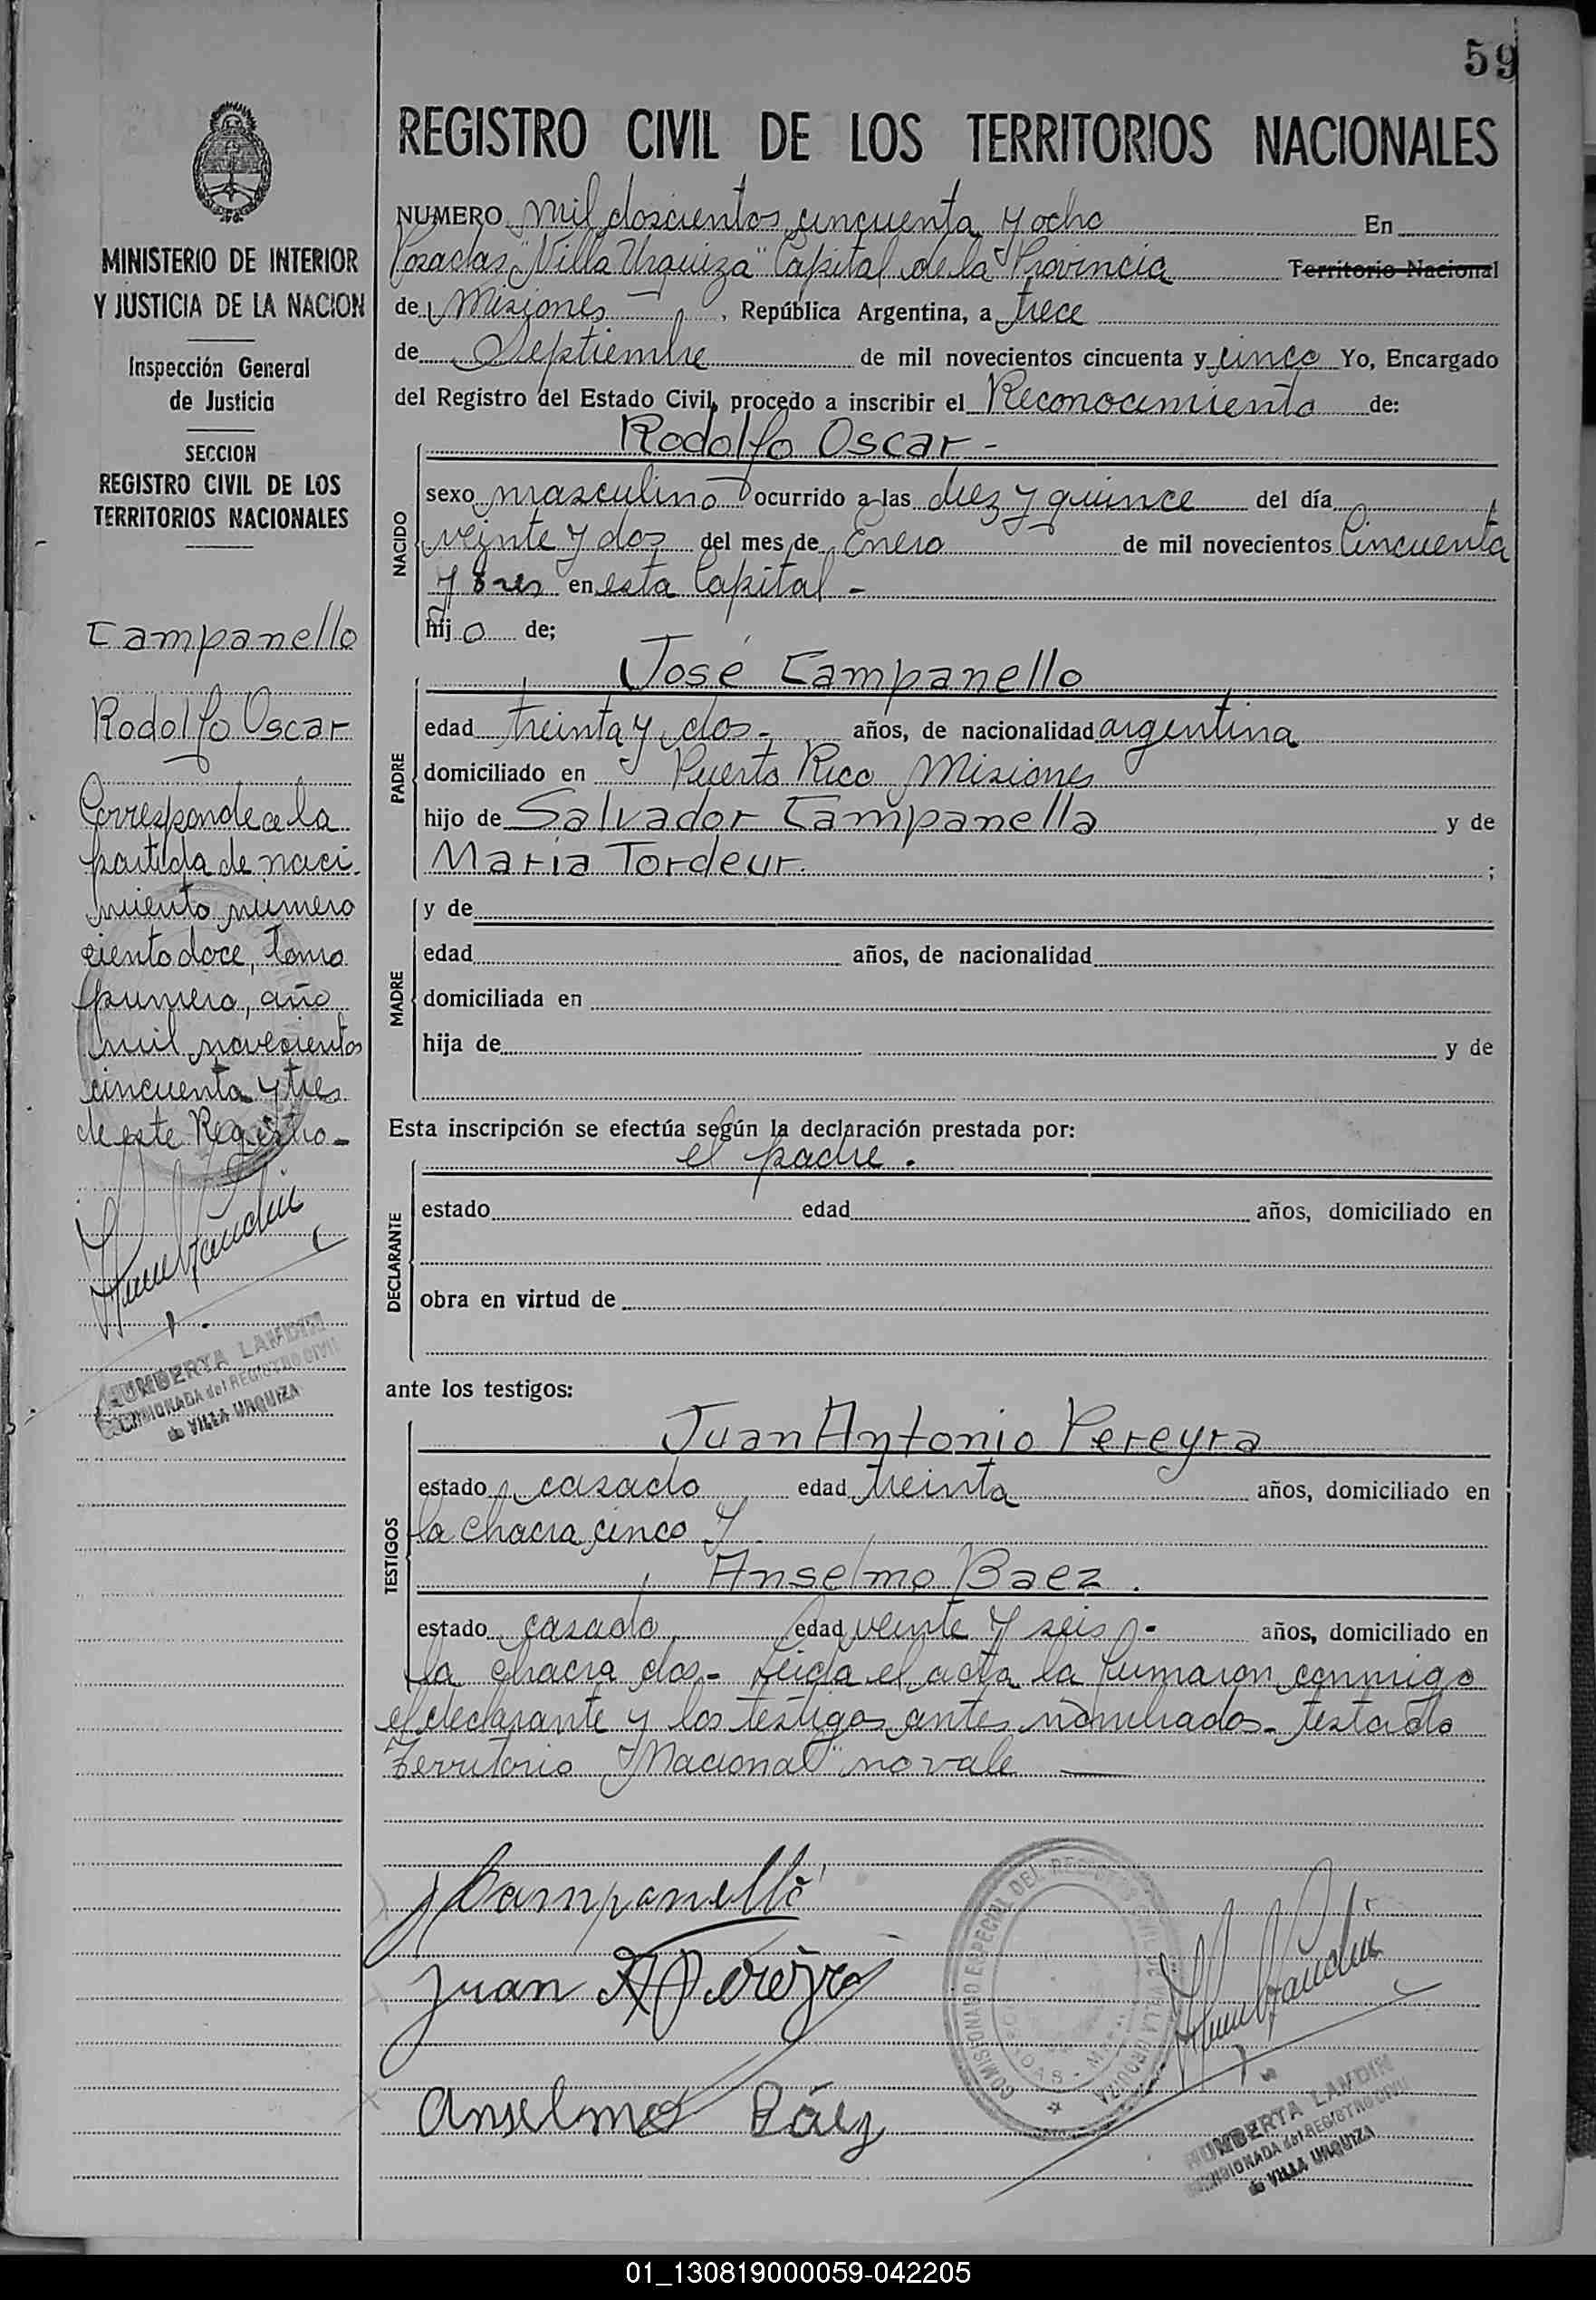 59
REGISTRO CIVIL DE LOS TERRITORIOS NACIONALES
MINISTERIO DE INTERIOR
Y JUSTICIA DE LA NACION
Inspección General
de Justicia
SECCION
REGISTRO CIVIL DE LOS
TERRITORIOS NACIONALES
Campanello
Rodolfo Oscar
Corresponde a la
partida de naci-
miento número
ciento doce, tomo
primero, año
mil novecientos
cincuenta y tres
de este Registro -
HUMBERTA LANDIN
COMISIONADA del REGISTRO CIVIL
de VILLA URQUIZA
NUMERO mil doscientos cincuenta y ocho En
Posadas "Villa Urquiza" Capital de la Provincia Territorio Nacional
de Misiones, República Argentina, a trece
de Septiembre de mil novecientos cincuenta y cinco Yo, Encargado
del Registro del Estado Civil, procedo a inscribir el Reconocimiento de:
Rodolfo Oscar -
NACIDO
sexo masculino ocurrido a las diez y quince del día
veinte y dos del mes de Enero de mil novecientos Cincuenta
y tres en esta Capital -
hijo de;
José Campanello
PADRE
edad treinta y dos - años, de nacionalidad argentina
domiciliado en Puerto Rico Misiones
hijo de Salvador Campanella y de
Maria Tordeur. ;
MADRE
y de
edad años, de nacionalidad
domiciliada en
hija de y de
Esta inscripción se efectúa según la declaración prestada por:
el padre.
DECLARANTE
estado edad años, domiciliado en
obra en virtud de
ante los testigos:
TESTIGOS
Juan Antonio Pereyra
estado casado edad treinta años, domiciliado en
la chacra cinco y
Anselmo Baez.
estado casado edad veinte y seis - años, domiciliado en
la chacra dos - Leida el acta la firmaron conmigo
el declarante y los testigos antes nombrados - testado
Territorio Nacional" no vale
J Campanello
Juan A Pereyra
Anselmo Báez
COMISIONADO ESPECIAL DEL REGISTRO CIVIL DE VILLA URQUIZA
HUMBERTA LANDIN
COMISIONADA del REGISTRO CIVIL
de VILLA URQUIZA
01_130819000059-042205